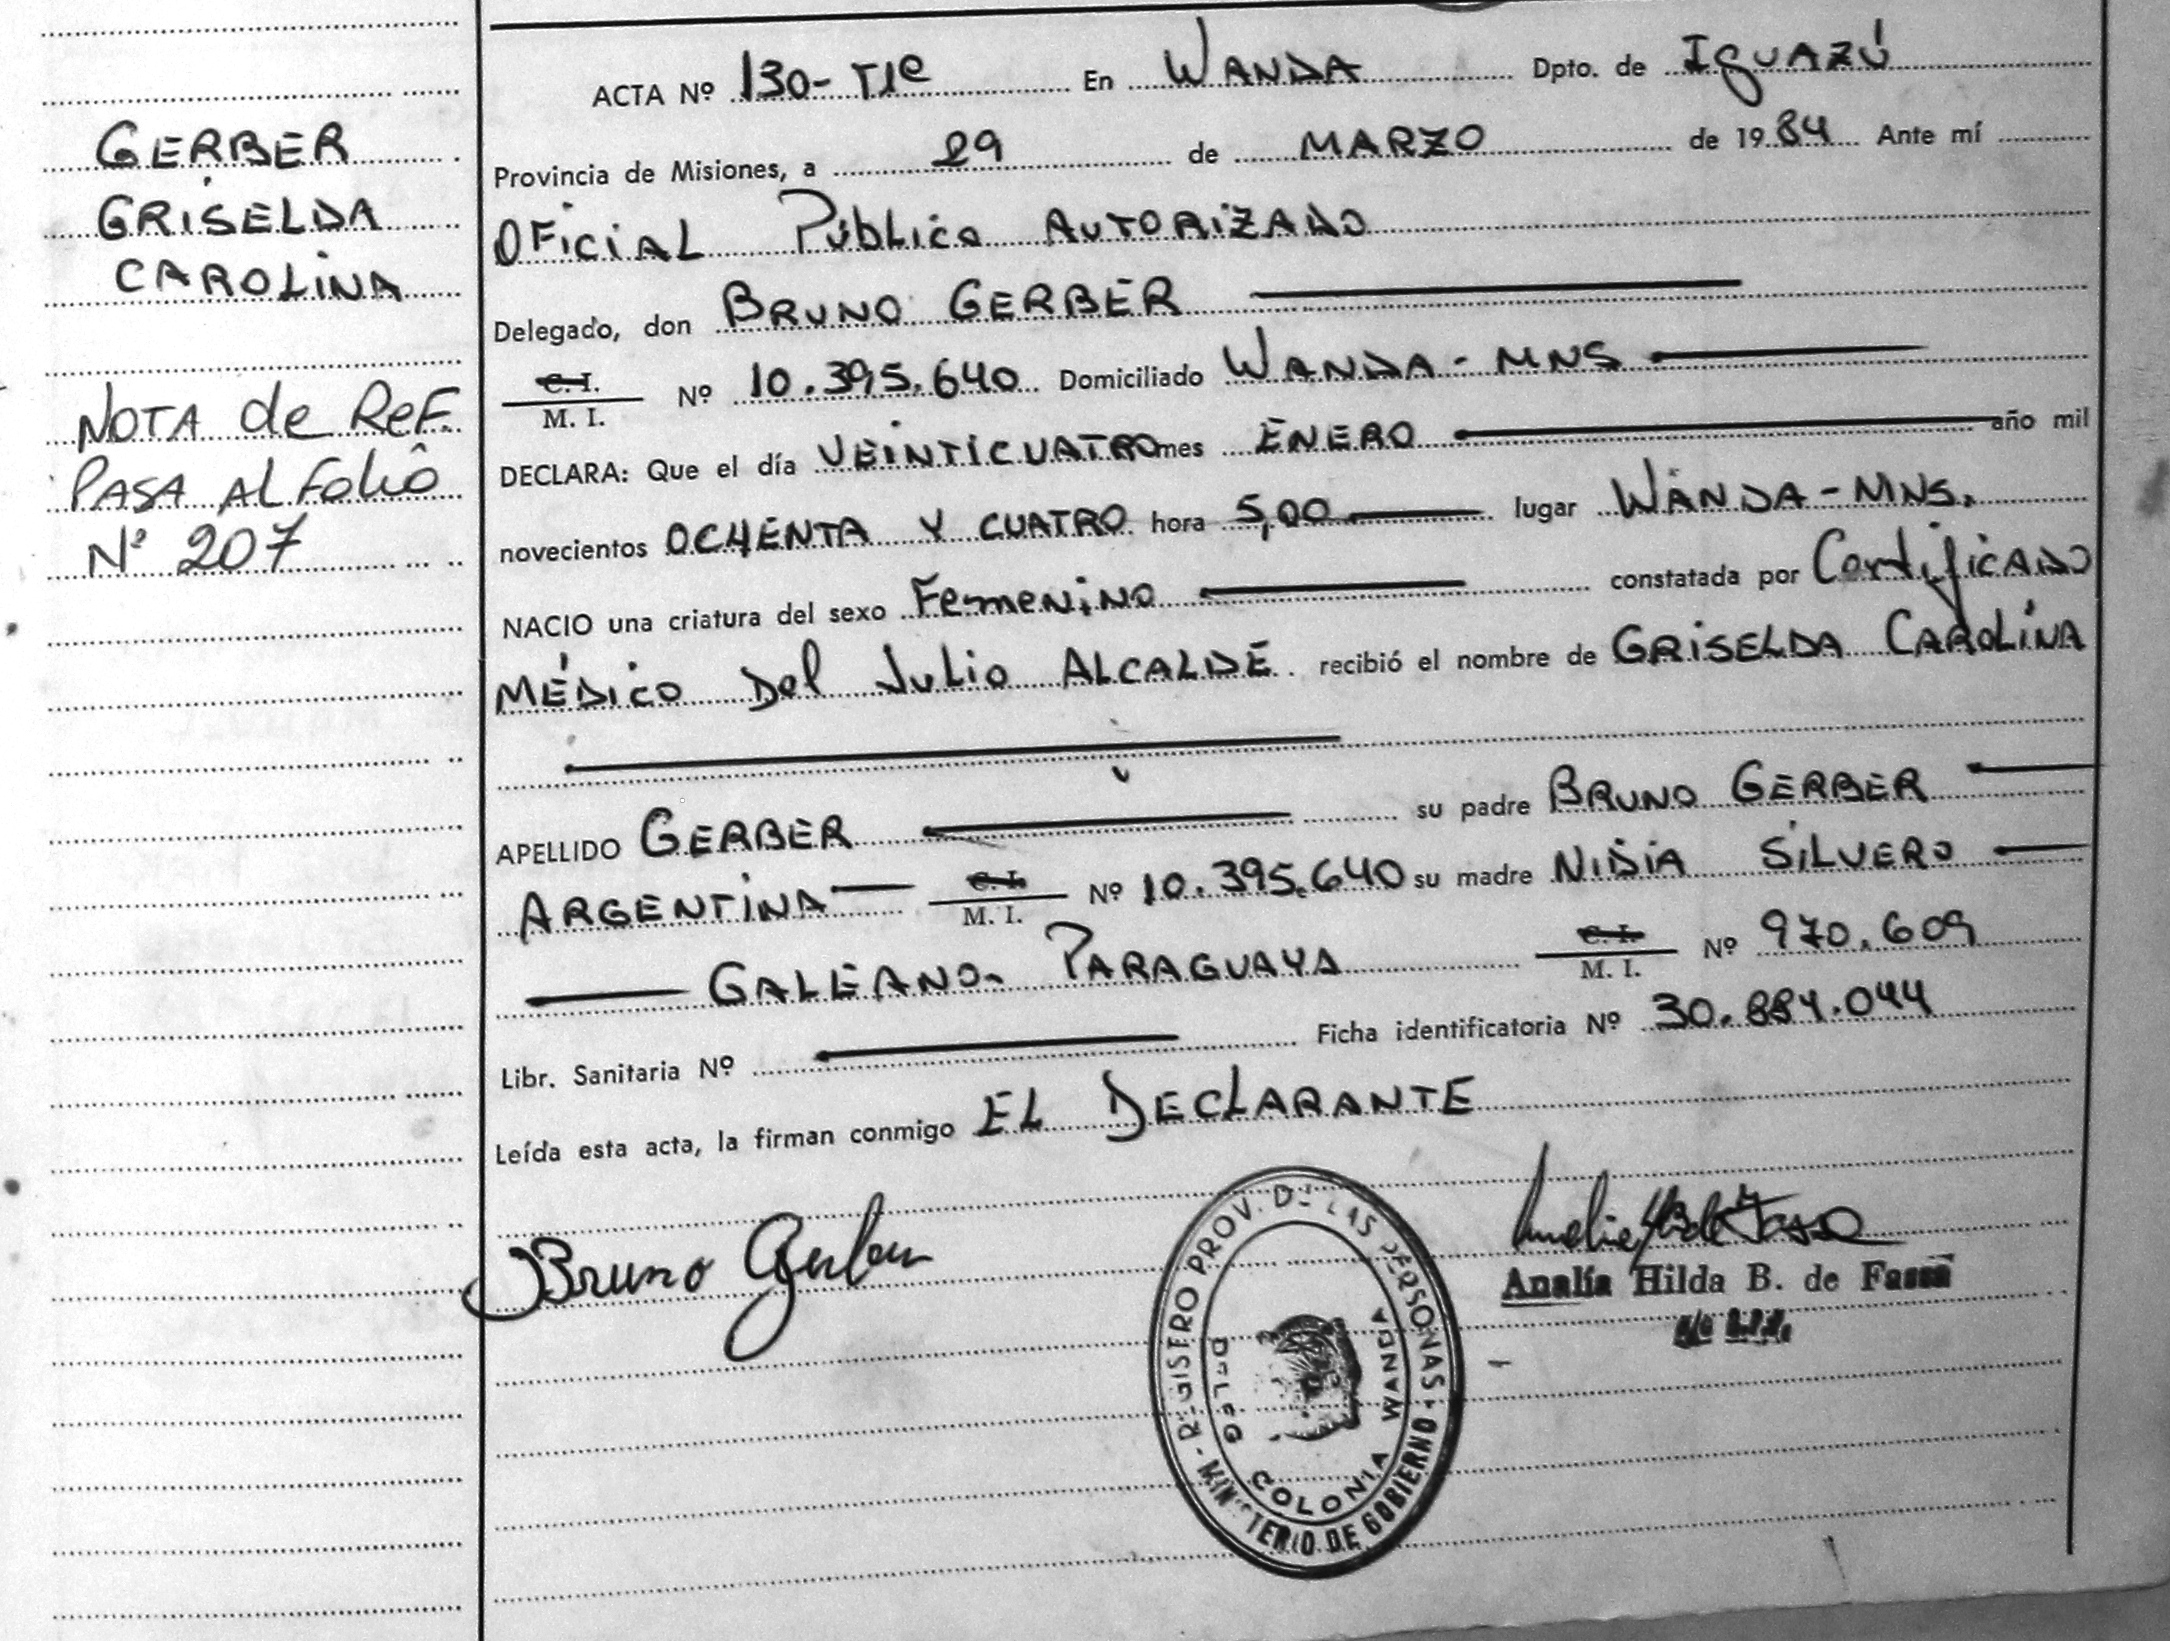 GERBER
GRISELDA
CAROLINA
NOTA de REF.
PASA AL Folio
Nº 207
ACTA Nº 130-T1º En WANDA Dpto. de IGUAZÚ
Provincia de Misiones, a 29 de MARZO de 1984 Ante mí
OFICIAL Público AUTORIZADO
Delegado, don BRUNO GERBER
C. I.
M. I. Nº 10.395.640 Domiciliado WANDA - MNS
DECLARA: Que el día VEINTICUATRO mes ENERO año mil
novecientos OCHENTA Y CUATRO hora 5,00 lugar WANDA - MNS.
NACIO una criatura del sexo FEMENINO constatada por Certificado
MÉDICO Del Julio ALCALDE recibió el nombre de GRISELDA CAROLINA
APELLIDO GERBER su padre BRUNO GERBER
ARGENTINA C. I.
M. I. Nº 10.395.640 su madre NIDIA SILVERO
GALEANO - PARAGUAYA C. I.
M. I. Nº 970.609
Libr. Sanitaria Nº Ficha identificatoria Nº 30.884.044
Leída esta acta, la firman conmigo EL DECLARANTE
Bruno Gerber
REGISTRO PROV. DE LAS PERSONAS - MINISTERIO DE GOBIERNO
DELEG COLONIA WANDA
Analía Hilda B. de Fassa